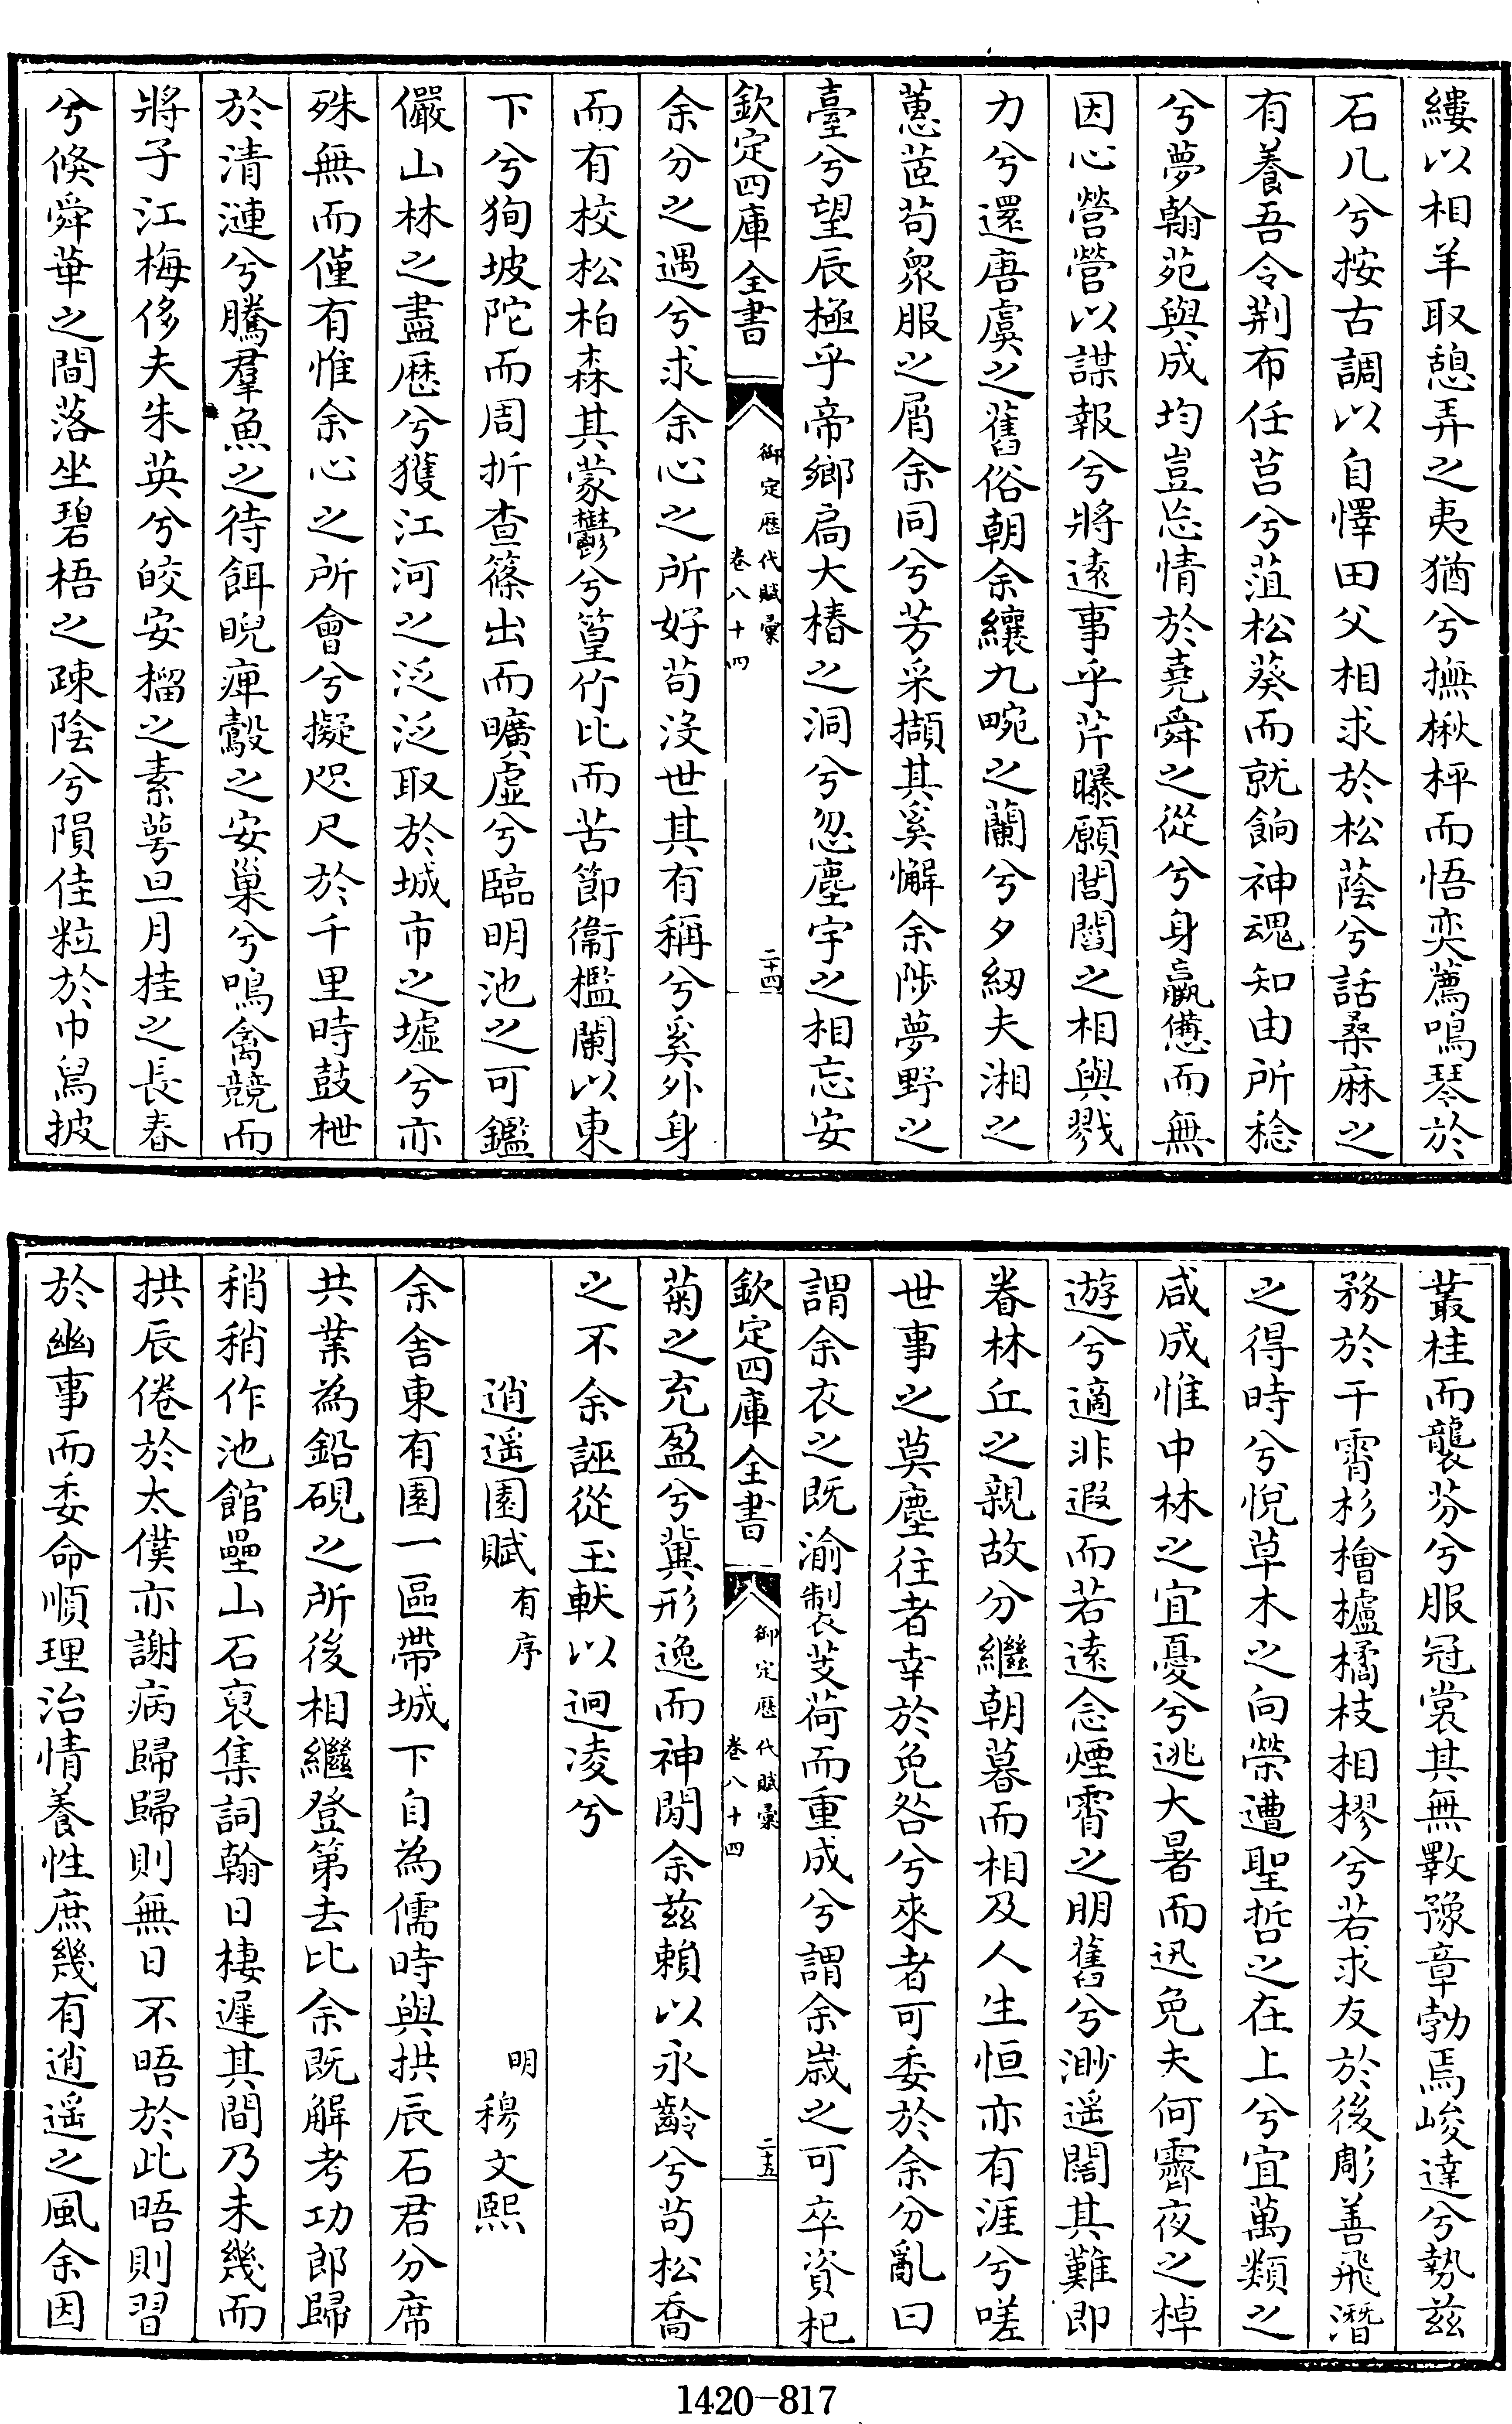 縷以相羊取憩弄之夷猶兮撫楸枰而悟奕薦鳴琴於
石几兮按古調以自懌田父相求於松蔭兮話桑麻之
有養吾令荆布任莒兮菹松葵而就餉神魂知由所稔
兮夢翰苑與成均豈忘情於堯舜之從兮身羸憊而無
因心營營以謀報兮將逺事乎芹曝願閭閻之相與戮
力兮還唐虞之舊俗朝余纕九畹之蘭兮夕紉夫湘之
蕙茝苟衆服之屑余同兮芳采擷其奚懈余陟夢野之
臺兮望辰極乎帝鄉扃大椿之洞兮忽塵宇之相忘安
欽定四庫全書
御定歴代賦彚
卷八十四
二十四
余分之遇兮求余心之所好苟没世其有稱兮奚外身
而有校松柏森其蒙鬱兮篁竹比而苦節衞檻闌以東
下兮狥坡陀而周折查篠出而曠虚兮臨明池之可鑑
儼山林之盡歴兮獲江河之泛泛取於城市之墟兮亦
殊無而僅有惟余心之所會兮擬咫尺於千里時鼓枻
於清漣兮騰羣魚之待餌睨痺鷇之安巢兮鳴禽競而
將子江梅侈夫朱英兮皎安榴之素萼旦月桂之長春
兮倏舜華之間落坐碧梧之疎陰兮隕佳粒於巾舄披
叢桂而襲芬兮服冠裳其無斁豫章勃焉峻達兮勢兹
務於干霄杉檜櫨橘枝相樛兮若求友於後彫善飛潛
之得時兮悦草木之向榮遭聖哲之在上兮宜萬類之
咸成惟中林之宜憂兮逃大暑而迅免夫何霽夜之棹
遊兮適非遐而若逺念煙霄之朋舊兮渺遥闊其難即
眷林丘之親故分繼朝暮而相及人生恒亦有涯兮嗟
世事之莫塵往者幸於免咎兮來者可委於余分亂曰
謂余衣之既渝製芰荷而重成兮謂余歲之可卒資杞
欽定四庫全書
御定歴代賦彚
卷八十四
二十五
菊之充盈兮冀形逸而神閒余兹賴以永齡兮苟松喬
之不余誣從玉軑以迥凌兮
逍遥園賦有序 明穆文熙
余舍東有園一區帶城下自為儒時與拱辰石君分席
共業為鉛硯之所後相繼登第去比余既解考功郎歸
稍稍作池館壘山石裒集詞翰日棲遲其間乃未幾而
拱辰倦於太僕亦謝病歸歸則無日不晤於此晤則習
於幽事而委命順理治情養性庶幾有逍遥之風余因
1420-817